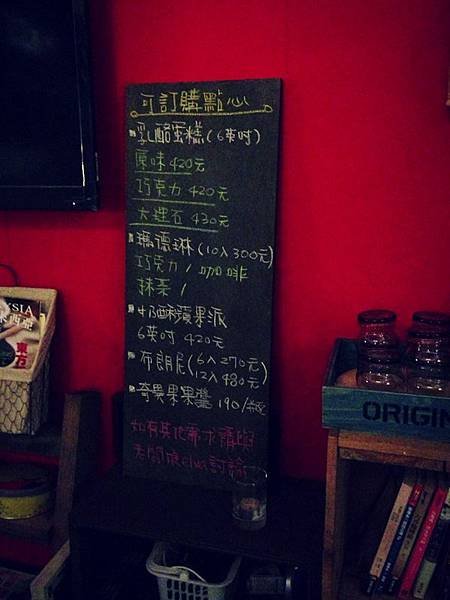 可訂購點心
乳酪蛋糕(6英吋)
原味 420元
巧克力 420元
大理石 430元
瑪德琳(10入300元)
巧克力/咖啡
抹茶/
奶酥蘋果派
6英吋 420元
布朗尼(6入270元)
(12入480元)
奇異果果醬 190/
如有其他需求請與
老闆娘 討論
ORIGIN